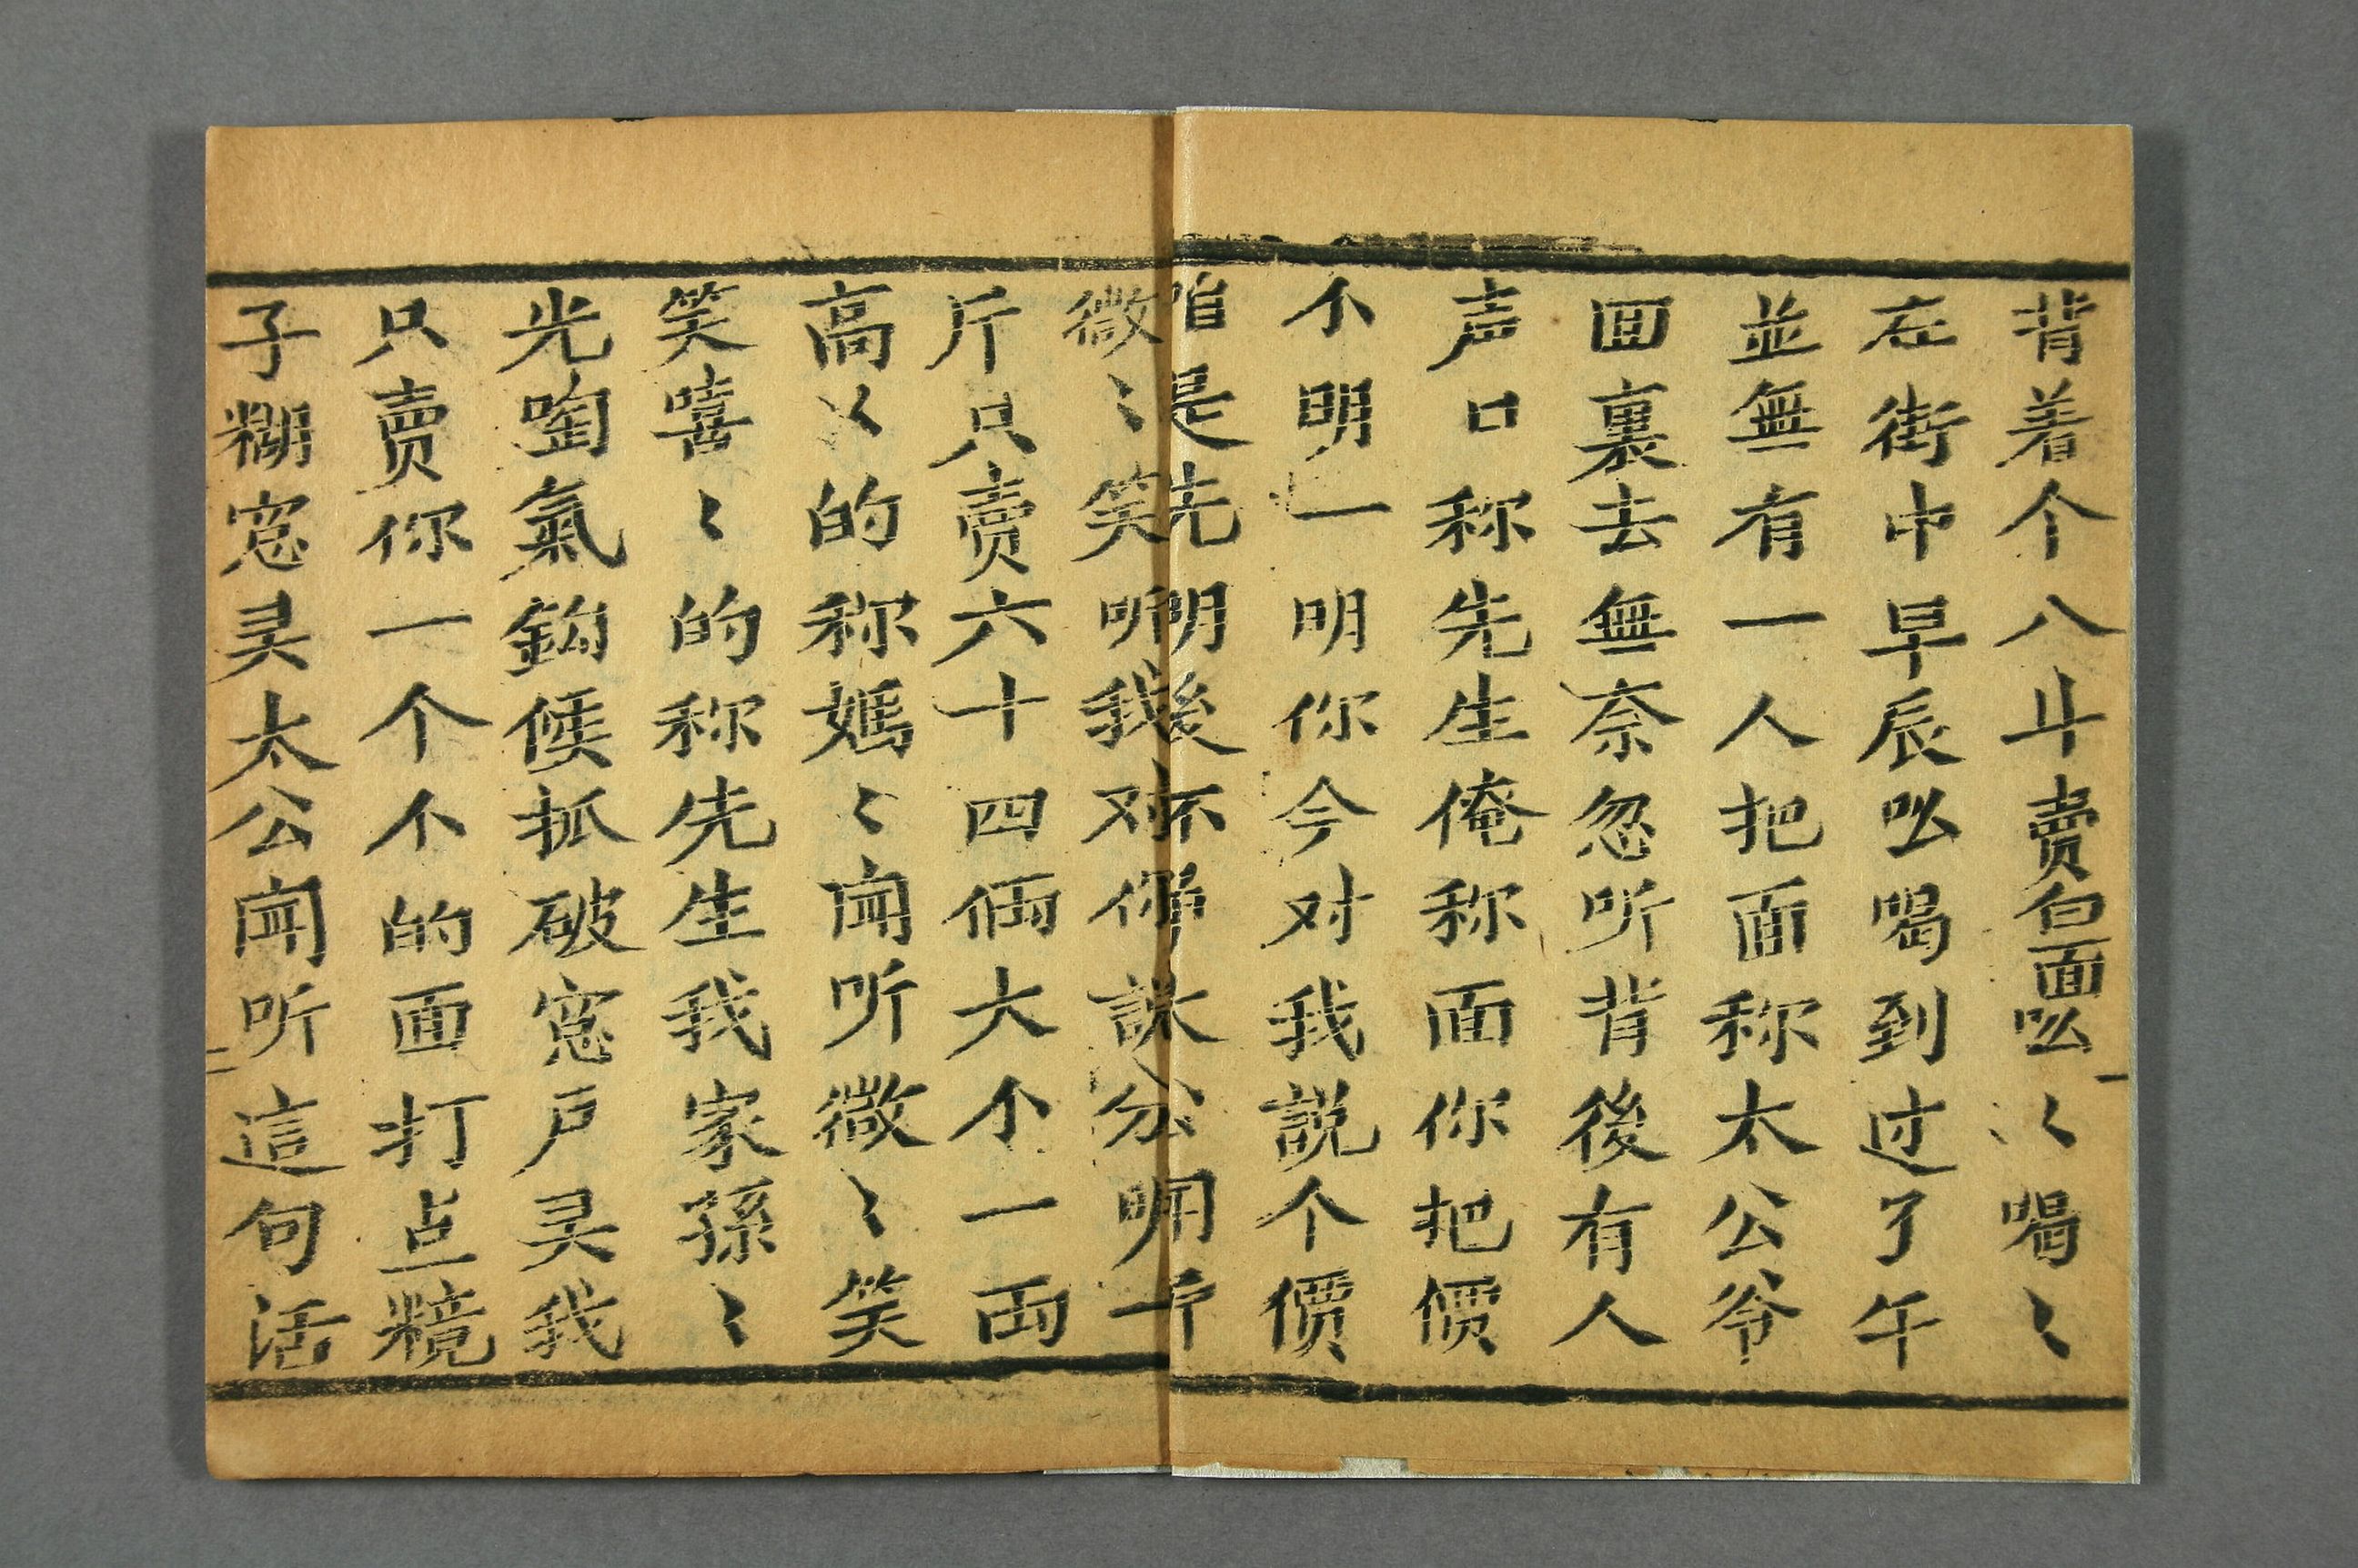 背着个八斗賣白面吆〻喝〻
在街中早辰吆喝到过了午
並無有一人把面称太公爷
回裏去無奈忽听背後有人
声口称先生俺称面你把價
不明一明你今对我説个價
咱是先明後不
微〻笑听我对你説分明
斤只賣六十四両大个一両
高〻的称媽〻闻听微〻笑
笑嘻〻的称先生我家孫〻
光啕氣鈎候抓破窓户灵我
只賣你一个个的面打点糡
子糊窓灵太公闻听這句活
一
二